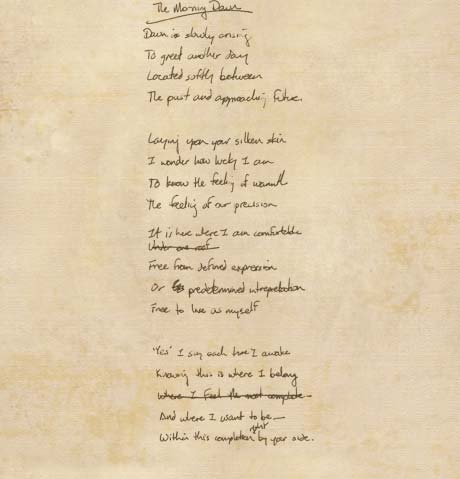 The Morning Dawn
Dawn is slowly arising
To greet another day
Located softly between
The past and approaching future.
Laying upon your silken skin
I wonder how lucky I am
To know the feeling of warmth
The feeling of our precision
It is here where I am comfortable
Under one roof
Free from defined expression
Or predetermined intrepretation
Free to live as myself
'Yes' I say each time I awake
Knowing this is where I belong
Where I feel the most complete
And where I want to be
Within this completion right by your side.